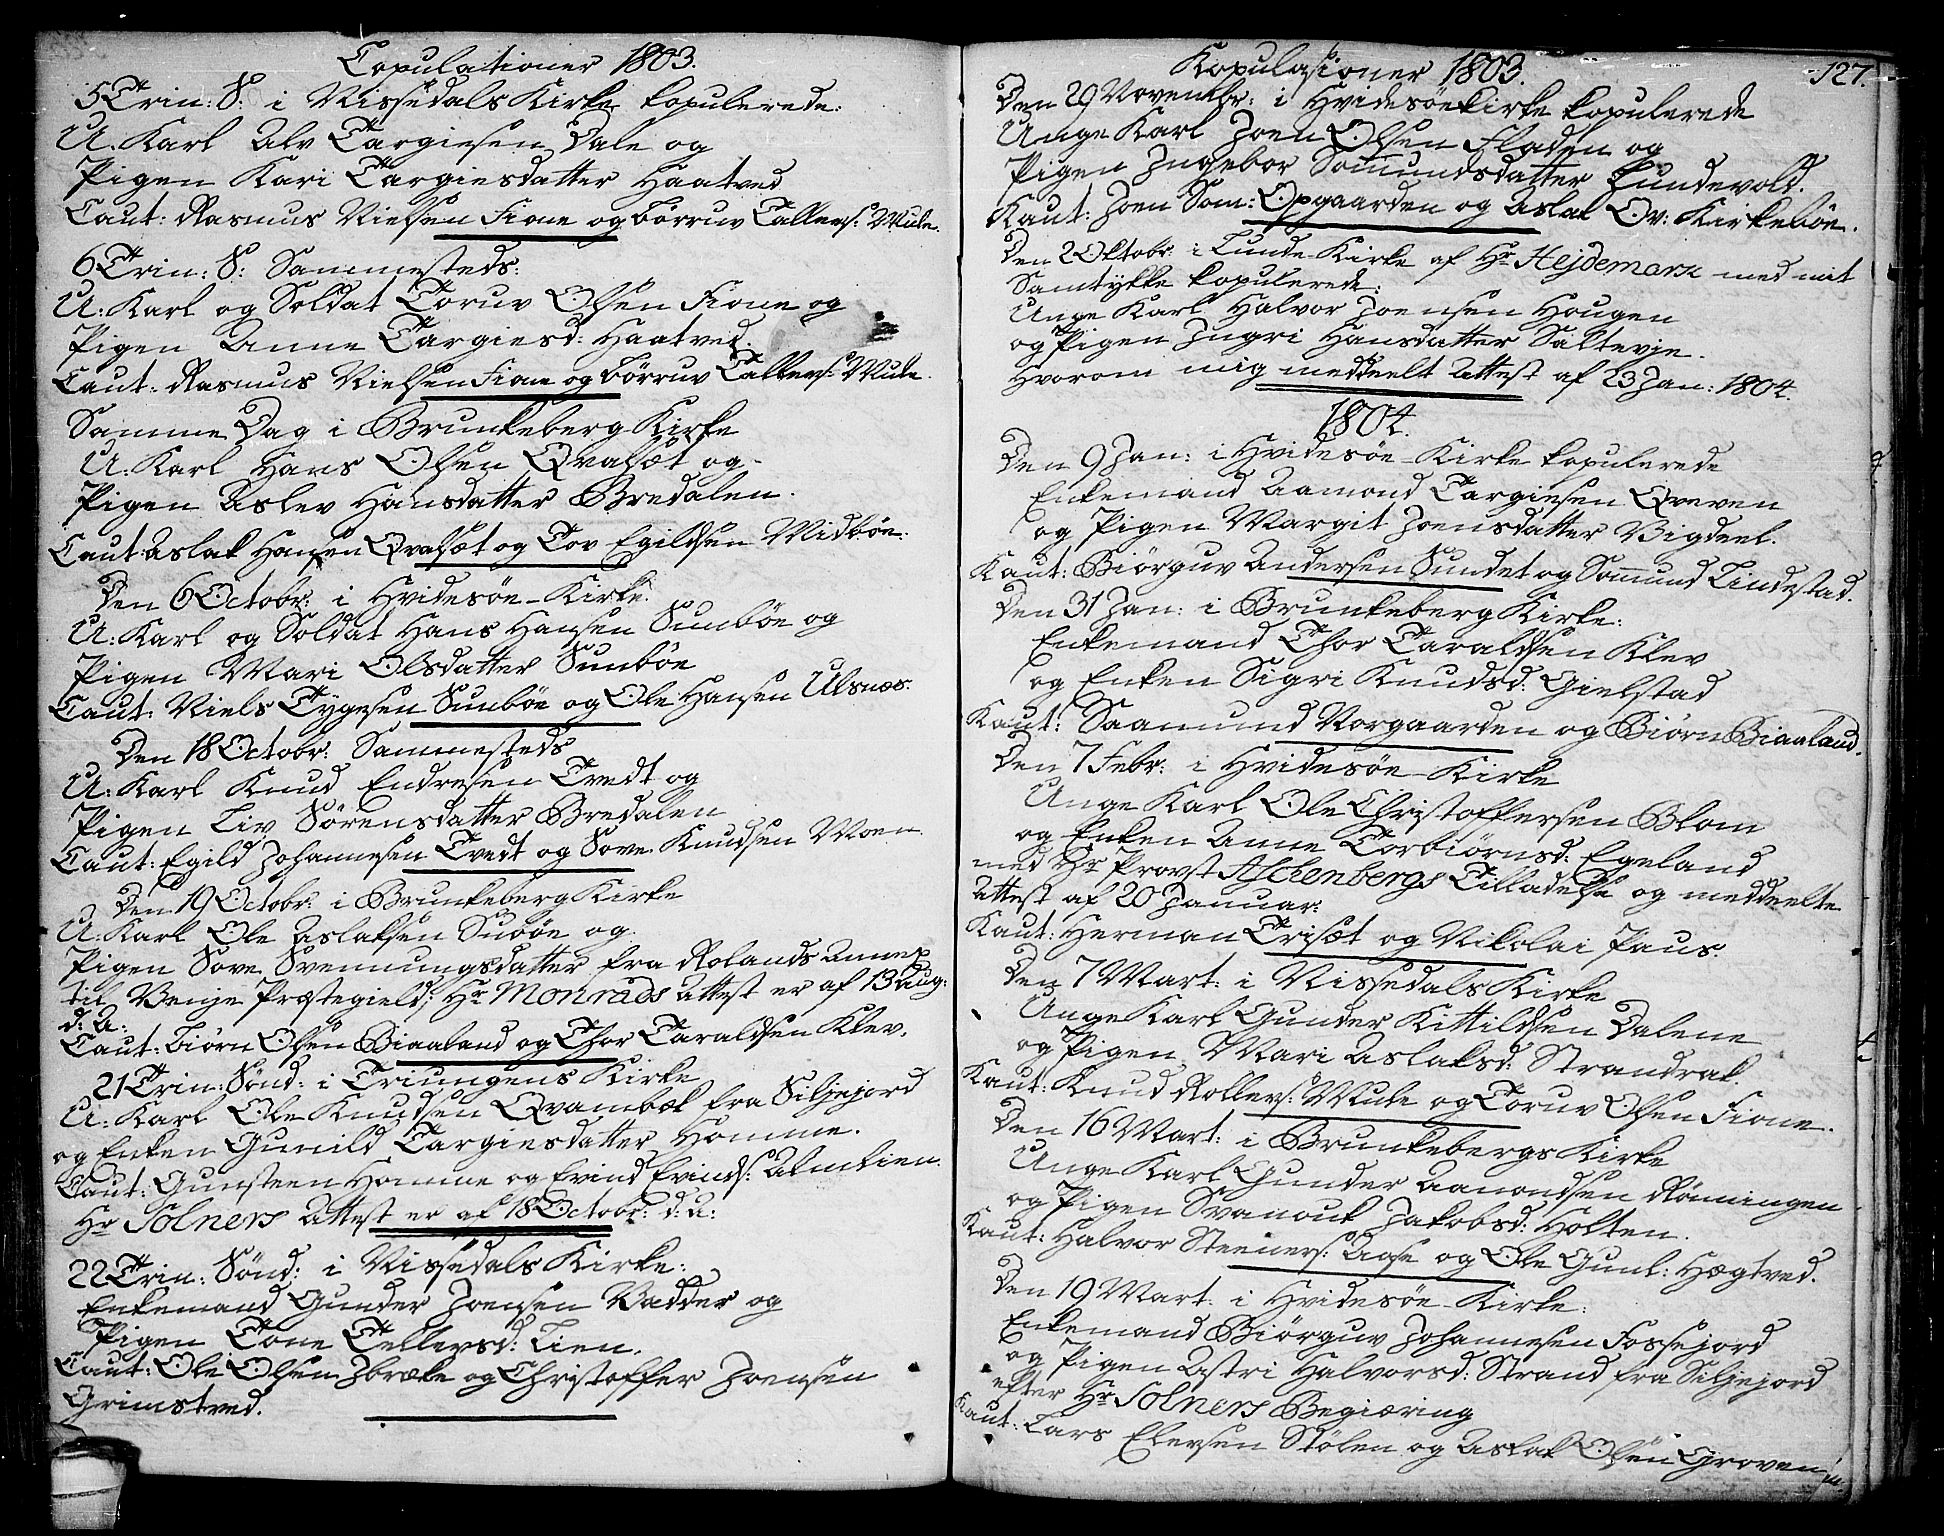 Copulationer 1803.
5 Trin: S: i Nissedals Kirke kopulerede:
U. Karl Alv Targiesen Dale og
Pigen Kari Targiesdatter Haatved
Caut: Rasmus Nielsen Fione og Børruv Tallevs: Mule.
6 Trin: S: Sammesteds:
U: Karl og Soldat Toruv Olsen Fione og
Pigen Anne Targiesd: Haatved.
Caut: Rasmus Nielsen Fione og Børruv Tallevs: Mule.
Samme Dag i Brunkeberg Kirke
U: Karl Hans Olsen Qvasæt og
Pigen Aslev Hansdatter Bredalen.
Caut: Aslak Hansen Qvasæt og Tov Egildsen Midbøe.
Den 6 Octobr: i Hvidesøe-Kirke.
U: Karl og Soldat Hans Hansen Sunbøe og
Pigen Mari Olsdatter Sunbøe
Caut: Niels Tygesen Sunbøe og Ole Hansen Ulsnæs.
Den 18 Octobr: Sammesteds
U: Karl Knud Endresen Tvedt og
Pigen Liv Sørensdatter Bredalen
Caut: Egild Johannesen Tvedt og Sove Knudsen Moen.
Den 19 Octobr: i Brunkeberg Kirke
U: Karl Ole Aslaksen Suøe og
Pigen Sove Svennungsdatter fra Rolands Annex
til Venje Præstegield; Hr Monrads Attest er af 13 Aug:
d: A:
Caut: Biørn Olsen Biaaland og Thor Taraldsen Klev.
21 Trin: Sønd: i Triungens Kirke
U: Karl Ole Knudsen Qvambæk fra Siljejord
og Enken Gunild Targiesdatter Homme.
Caut: Gunsteen Homme og Evind Evinds: Almlien.
Hr Solners Attest er af 18 Octobr: d: A:
22 Trin: Sønd: i Nissedals Kirke:
Enkemand Gunder Joensen Vadder og
Pigen Tone Tellevsd: Lien.
Caut: Ole Olsen Ibræke og Christoffer Joensen
Grimstved.
Kopulasioner 1803. 127.
Den 29 Novembr: i Hvidesøe Kirke kopulerede
Unge Karl Joen Olsen Fladen og
Pigen Ingebor Somundsdatter Lundevold.
Kaut: Joen Som: Opgaarden og Aslak Ov: Kirkebøe.
Den 2 Oktobr: i Lunde-Kirke af Hr Hejdemark med mit
Samtykke kopulerede:
Unge Karl Halvor Joensen Hougen
og Pigen Ingri Hansdatter Saltevje.
Hvorom mig meddeelt Attest af 23 Jan: 1804.
1804.
Den 9 Jan: i Hvidesøe-Kirke kopulerede
Enkemand Aamond Targiesen Qveven
og Pigen Margit Joensdatter Vigdeel.
Kaut: Biørguv Andersen Sundet og Somund Lindestad.
Den 31 Jan: i Brunkeberg Kirke:
Enkemand Thor Taraldsen Klev
og Enken Sigri Knudsd: Gielstad
Kaut: Saamund Norgaarden og Biørn Biaaland.
Den 7 Febr: i Hvidesøe-Kirke
Unge Karl Ole Christoffersen Blom
og Enken Anne Torbiørnsd: Egeland
med Hr Provst Aschenbergs Tilladelse og meddeelte
Attest af 20 Januar:
Kaut: Herman Trisæt og Nikolai Paus.
Den 7 Mart: i Nissedals Kirke
Unge Karl Gunder Kittildsen Dalene
og Pigen Mari Aslaksd: Strandrak.
Kaut: Knud Rollevs: Mule og Toruv Olsen Fione.
Den 16 Mart: i Brunkebergs Kirke
Unge Karl Gunder Aanondsen Rønningen
og Pigen Svanouk Jakobsd: Holten.
Kaut: Halvor Steeners: Aase og Ole Gunl: Hægtved.
Den 19 Mart: i Hvidesøe-Kirke:
Enkemand Biørguv Johannesen Fossejord
og Pigen Astri Halvorsd: Strand fra Siljejord
efter Hr Solners Begiæring
Kaut: Lars Elevsen Stølen og Aslak Olsen Groven